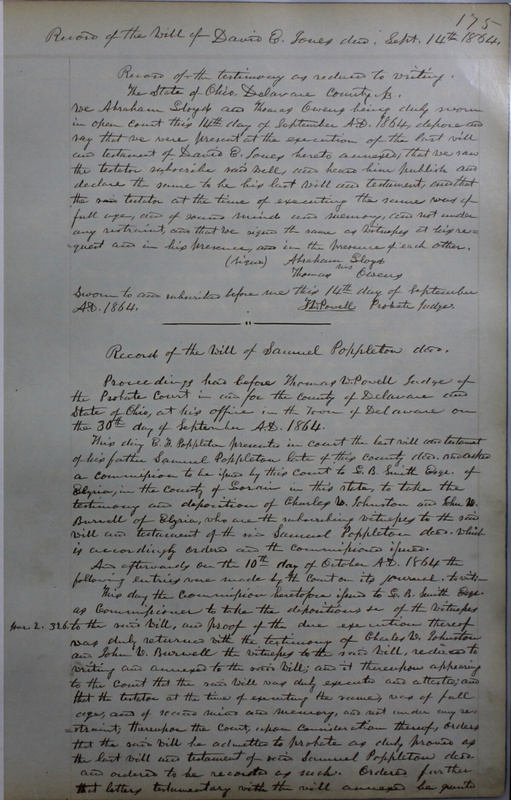 175
Record of the Will of David E. Jones decd. Sept. 14th 1864.
Record of the testimony as reduced to writing.
The State of Ohio, Delaware County, ss.
We Abraham Lloyd and Thomas Owens being duly sworn
in open court this 14th day of September A.D. 1864, depose and
say that we were present at the execution of the last will
and testament of David E. Jones hereto annexed, that we saw
the testator subscribe said will, and heard him publish and
declare the same to be his last will and testament, and that
the said testator at the time of executing the same was of
full age, and of sound mind and memory, and not under
any restraint, and that we signed the same as witnesses at his re-
quest and in his presence, and in the presence of each other.
(Signed) Abraham Lloyd
Thomas Owens
Sworn to and subscribed before me this 14th day of September
A.D. 1864. T.W. Powell Probate Judge.
Record of the Will of Samuel Poppleton decd.
Proceedings had before Thomas W. Powell Judge of
the Probate Court in and for the county of Delaware and
State of Ohio, at his office in the Town of Delaware on
the 30th day of September A.D. 1864.
This day E. F. Poppleton presented in court the last will and testament
of his father Samuel Poppleton late of this county decd. and asked
a commission to be issued by this court to L. B. Smith Esqr. of
Elyria, in the county of Lorain in this state, to take the
testimony and deposition of Charles W. Johnston and John W.
Burrell of Elyria, who are the subscribing witnesses to the said
will and testament of the said Samuel Poppleton decd. which
is accordingly ordered and the commission issued.
And afterwards on the 10th day of October A.D. 1864 the
following entries were made by the Court on its journal. to wit:
This day the Commission heretofore issued to L. B. Smith Esqr.
as Commissioner to take the depositions of the witnesses
2. 326. to the said Will, and proof of the due execution thereof
was duly returned with the testimony of Charles W. Johnston
and John W. Burwell the witnesses to the said Will, reduced to
writing and annexed to the said Will; and it thereupon appearing
to the Court that the said Will was duly executed and attested, and
that the testator at the time of executing the same, was of full
age, and of sound mind and memory, and not under any re-
straint, thereupon the Court, upon consideration thereof, orders
that the said Will be admitted to probate as duly proved as
the last will and testament of said Samuel Poppleton decd
and ordered to be recorded as such. Ordered further
that letters testamentary with the will annexed be granted